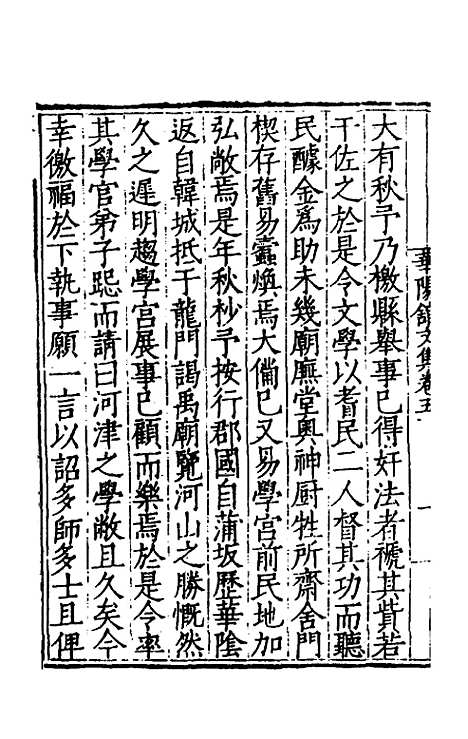 華陽館文集卷五
大有秋予乃檄縣舉事已得奸法者褫其貲若
干佐之於是令文學以耆民二人督其功而聽
民醵金爲助未幾廟廡堂奧神厨牲所齋舍門
楔存舊易蠹煥焉大備已又易學宮前民地加
弘敞焉是年秋杪予按行郡國自蒲坂歷華陰
返自韓城抵于龍門謁禹廟覽河山之勝慨然
久之遲明趨學宮展事已顧而樂焉於是令率
其學官弟子跽而請曰河津之學敝且久矣今
幸徼福於下執事願一言以詔多師多士且俾